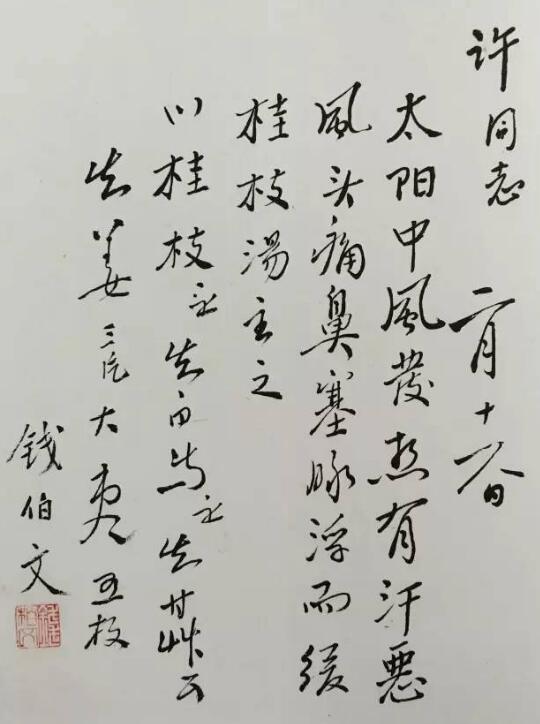 许同志 二月十八日
太阳中風發热有汗惡
風头痛鼻塞脉浮而缓
桂枝湯主之
川桂枝 生白芍 生甘草
生姜三片大枣五枚
钱伯文